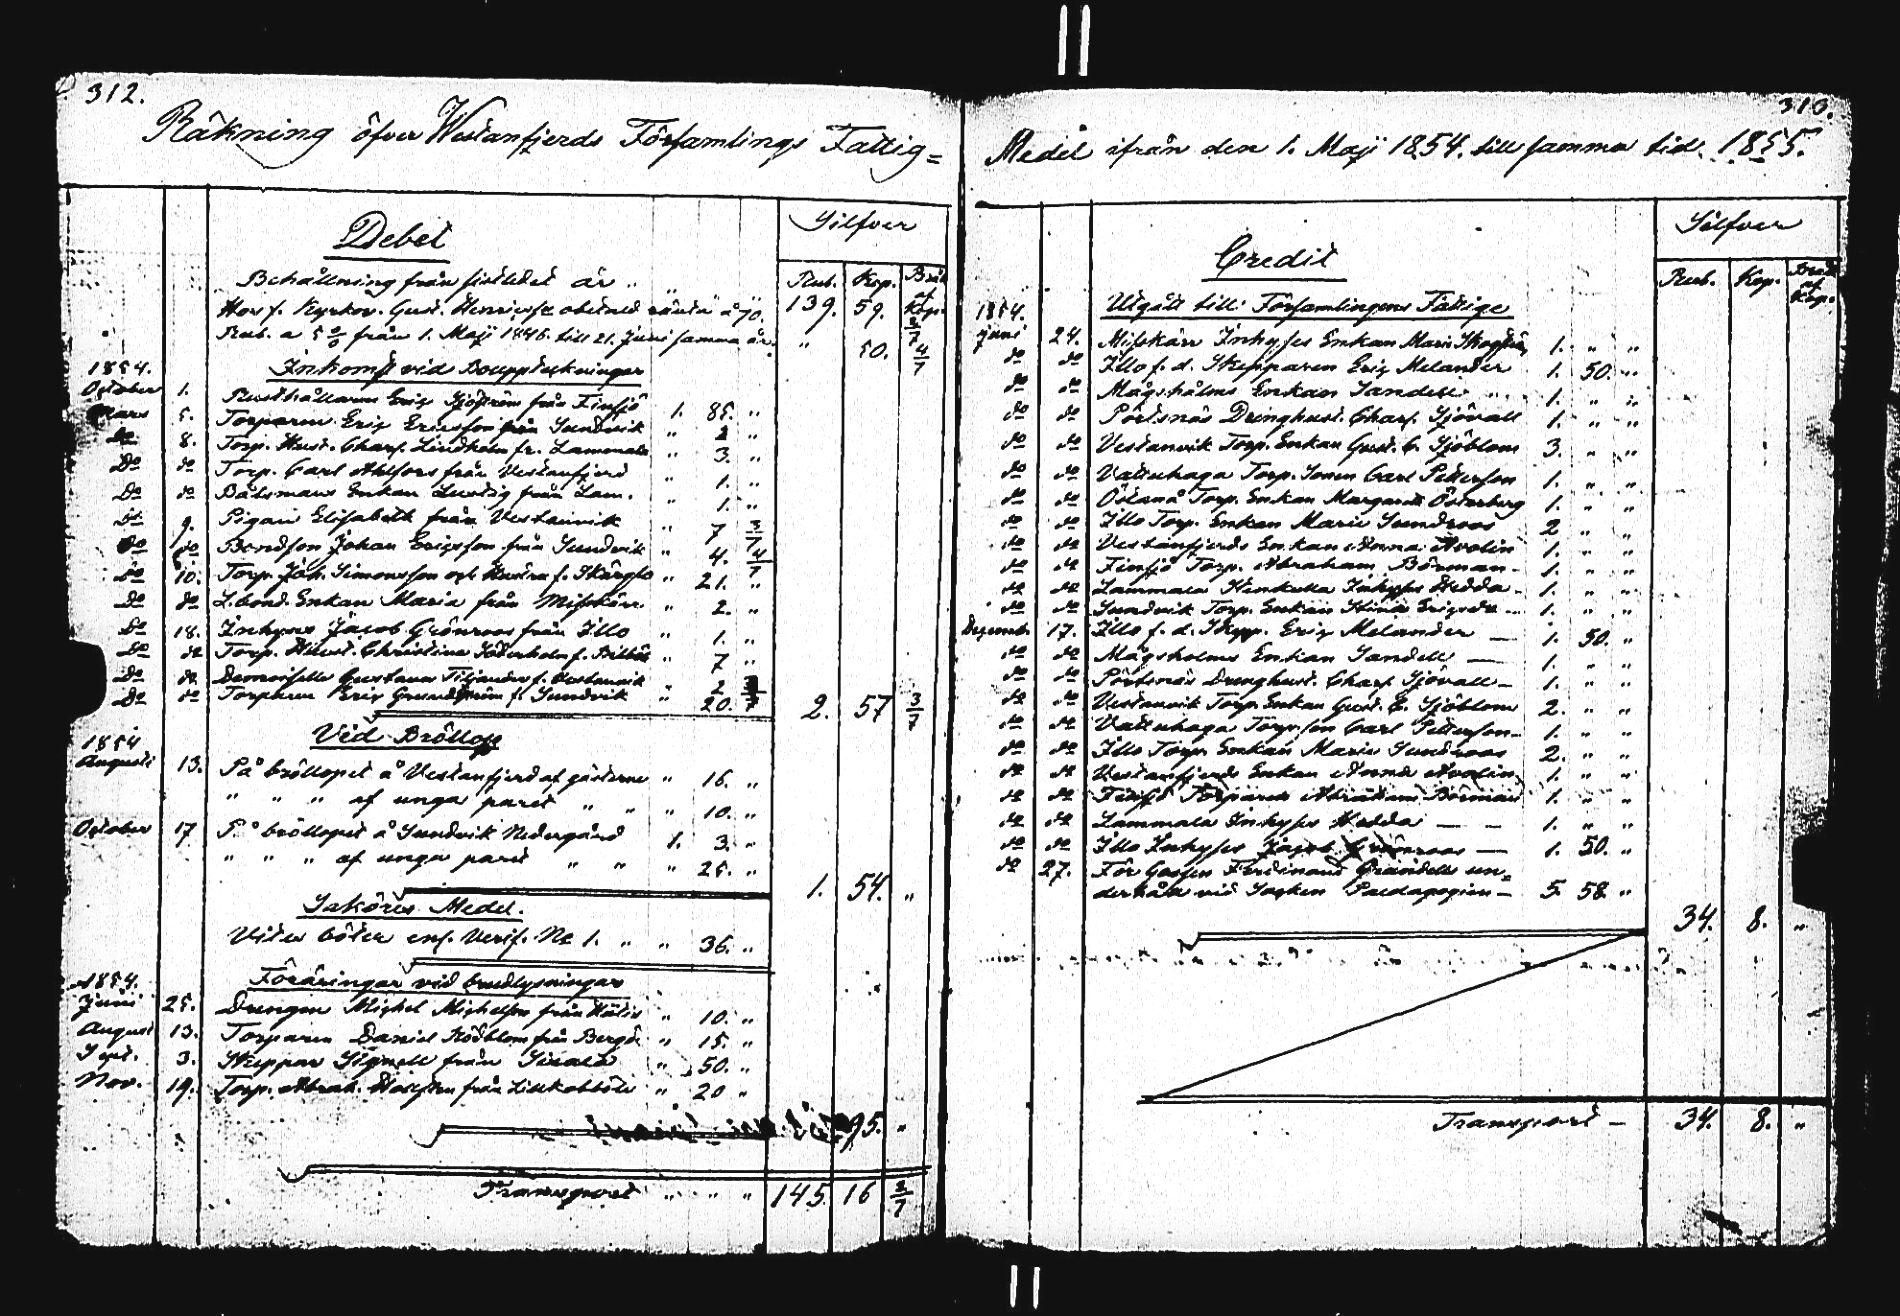 312.
Räkning öfver Westanfjerds Församlings Fattig=
Debet
Silfver
Rub. Kop. Bråk af Kop.
Behållning från sistledet år " " " 139. 59. 3/7
Hos f. Kyrkov. Gust. Henricsson obetald ränta å 70.
Rub. a 5 % från 1. Maji 1846. till 21. Juni samma år. " 50. 4/7
Inkomst vid Bouppteckningar
1854.
October 1. Rusthållaren Eric Sjöström från Finsjö 1. 85. "
Mars 5. Torparen Eric Ericsson från Sundvik " 2 "
do 8. Torp. Hust. Charl. Lindholm fr. Lammala " 3. "
Do do Torp. Carl Ahlfors från Vestanfjerd " 1. "
Do do Båtsmans Enkan Lustig från Lam. " 1. "
Do 9. Pigan Elisabeth från Vestanvik " 7 3/7
Do do Bondson Johan Ericsson från Sundvik " 4. 4/7
Do 10. Torp. Joh. Simonsson och Hustru f. " 21. "
Do do L. bond. Enkan Maria från Misskärr " 2. "
Do 18. Inhyses Jacob Grönroos från Illo " 1. "
Do do Torp. Hust. Christina Söderholm f. " 7 "
Do do Demoiselle Gustava Tiljander f. Vestanvik " 2
Do do Torparen Eric Grundström f. Sundvik " 20.
2. 57 3/7
Vid Bröllop
1854
Augusti 13. På bröllopet å Vestanfjerd af gästerne " 16. "
" " " af unga paret " " " 10. "
October 17 På bröllopet å Sundvik Nedergård 1. 3. "
" " " af unga paret " " " 25. "
1. 54. "
Saköres Medel.
Vites böter enl. Verif. No 1. " " 36. "
Föräringar vid brudlysningar
1854.
Juni 25. Drengen Michel Michelsson från " 10. "
August 13. Torparen Daniel från " 15. "
Sept. 3. Skeppar Signell från " 50. "
Nov. 19. Torp. Abrah. från " 20 "
95. "
Transport " " " 145. 16 3/7
313.
Medel ifrån den 1. Maji 1854. till samma tid 1855.
Credit
Silfver
Rub. Kop. Bråk af Kop.
Utgått till: Församlingens Fattige
1854.
Juni 24. Misskärr Inhyses Enkan Maria 1. " "
do do Illo f. d. Skepparen Eric Melander 1. 50. "
do do Mågsholms Enkan Sandell " 1. " "
do do Pörtsnäs Drenghust. Charl. Sjövall 1. " "
do do Vestanvik Torp. Enkan Gust. C. Sjöblom 3. " "
do do Vattuhaga Torp. Sonen Carl Petterson 1. " "
do do Östanå Torp. Enkan Margaret Österberg 1. " "
do do Illo Torp. Enkan Maria Sundroos 2 " "
do do Vestanfjerds Enkan Anna Avelin 1. " "
do do Finsjö Torp. Abraham Börman - 1. " "
do do Lammala Inhyses Hedda - 1. " "
do do Sundvik Torp. Enkan Stina Ericsdr - 1. " "
Dezemb. 17. Illo f. d. Skepp. Eric Melander — 1. 50. "
do do Mågsholms Enkan Sandell — 1. " "
do do Pörtsnäs Drenghust. Charl. Sjövall - 1. " "
do do Vestanvik Torp. Enkan Gust. C. Sjöblom 2. " "
do do Vattuhaga Torp. son Carl Petterson - 1. " "
do do Illo Torp. Enkan Maria Sundroos 2. " "
do do Vestanfjerds Enkan Anna Avelin 1. " "
do do Finsjö Torparen Abraham Börman 1. " "
do do Lammala Inhyses Hedda — — 1. " "
do do Illo Inhyses Jacob Grönroos — 1. 50. "
do 27. För Gossen Ferdinand Grandell un=
derhåll vid Socken Paedagogien - 5. 58 "
34. 8. "
Transport — 34. 8. "